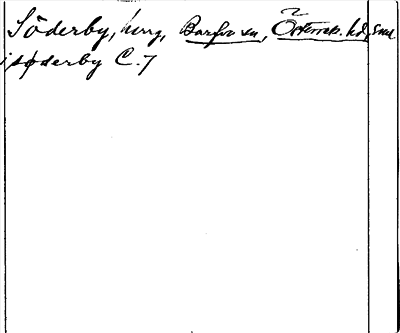 Söderby, herrg, Barfva sn, Österrek. hd, Sml.
i søderby C.7